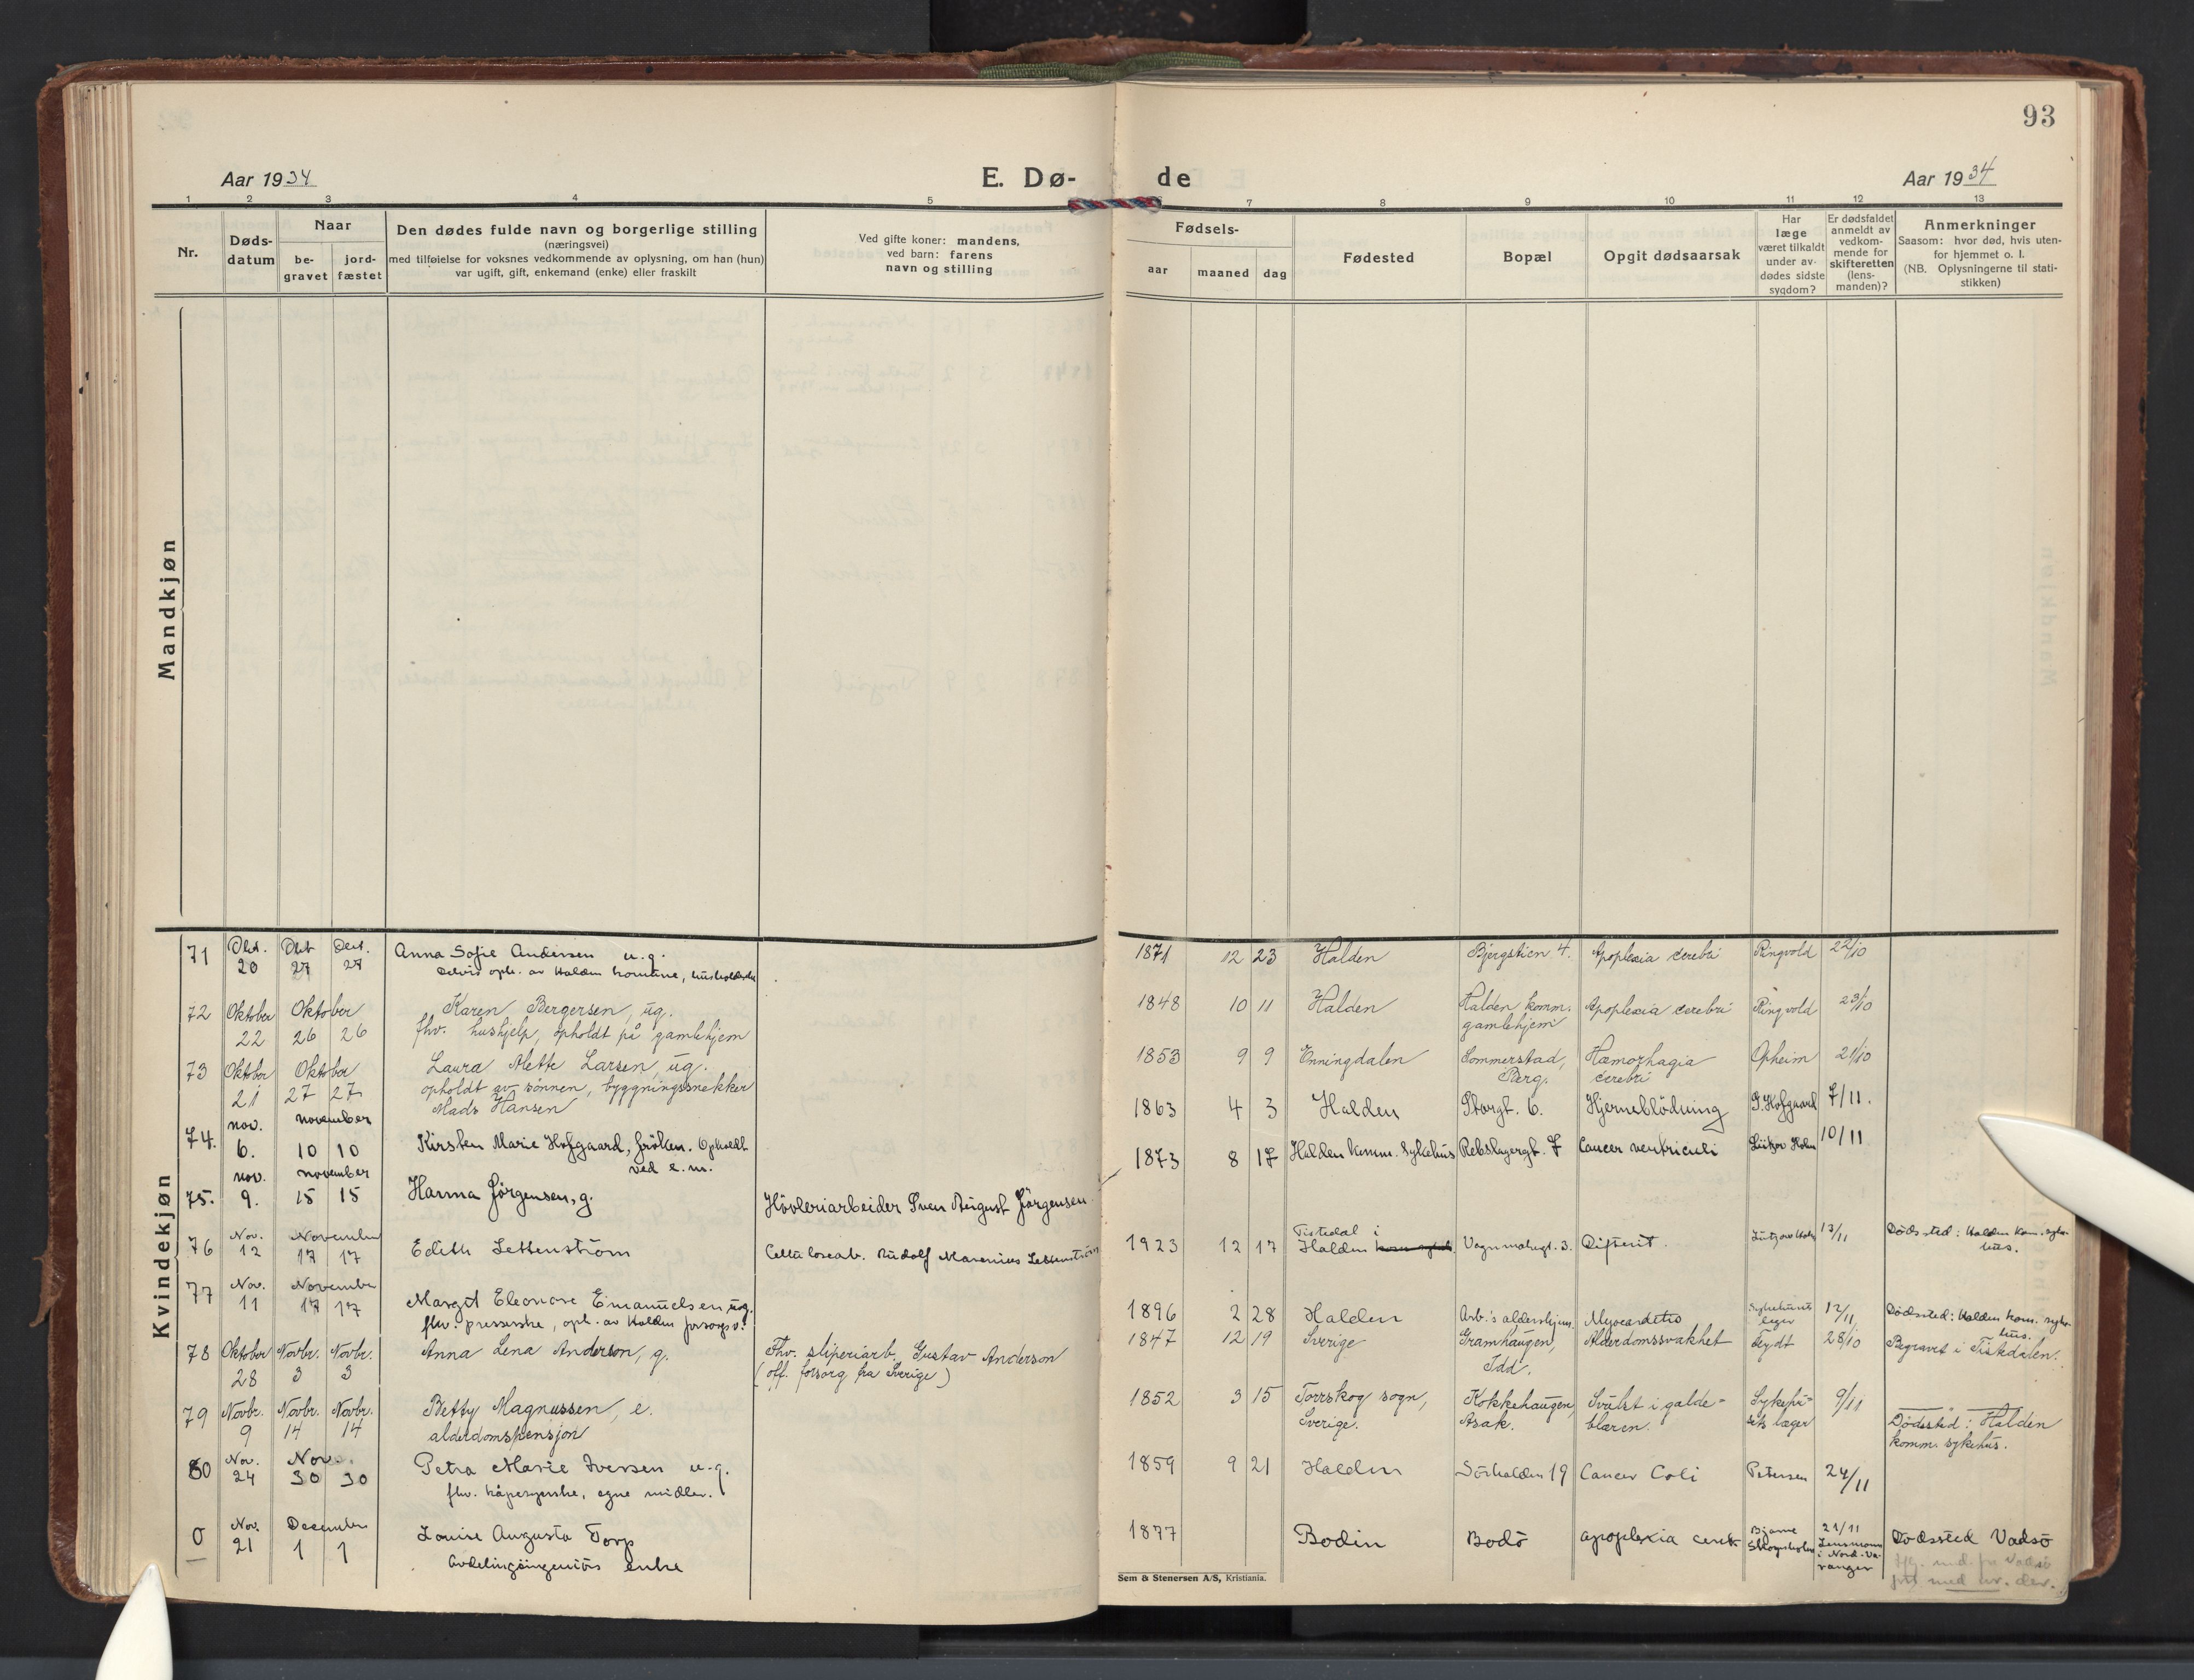 93
Aar 1934
E. Dø-
de
Aar 1934
1 2 3 4 5 7 8 9 10 11 12 13
Nr.
Døds-
datum
Naar
be-
gravet
jord-
fæstet
Den dødes fulde navn og borgerlige stilling
(næringsvei)
med tilføielse for voksnes vedkommende av oplysning, om han (hun)
var ugift, gift, enkemand (enke) eller fraskilt
Ved gifte koner: mandens,
ved barn: farens
navn og stilling
Fødsels-
aar maaned dag
Fødested
Bopæl
Opgit dødsaarsak
Har
læge
været tilkaldt
under av-
dødes sidste
sygdom?
Er dødsfaldet
anmeldt av
vedkom-
mende for
skifteretten
(lens-
manden)?
Anmerkninger
Saasom: hvor død, hvis uten-
for hjemmet o. l.
(NB. Oplysningerne til stati-
stikken)
Mandkjøn
Kvindekjøn
71 Okt. 20 Okt 27 Okt. 27 Anna Sofie Andersen u.g.
Delvis oph. av Halden komune,
1871 12 23 Halden Bjergstien 4. Apoplexia cerebri Ringvold 22/10
72 Oktober 22 Oktober 26 26 Karen Bergersen, ug.
fhv. hushjelp, opholdt på gamlehjem
1848 10 11 Halden Halden komm. gamlehjem Apoplexia cerebri Ringvold 23/10
73 Oktober 21 Oktober 27 27 Laura Mette Larsen, ug.
opholdt av sønnen, byggningssnekker
Mads Hansen
1853 9 9 Enningdalen Sommerstad, Berg. Hæmorhagia cerebri Opheim 21/10
74. nov. 6. november 10 10 Kirsten Marie Hofgaard, fröken. Opholdt
ved e.m.
1863 4 3 Halden Storgt. 6. Hjerneblödning G. Hofgaard 7/11.
75. nov. 9. november 15 15 Hanna Jörgensen, g.
Hövleriarbeider Sven August Jörgensen
1873 8 17 Halden Komm. Sykehus Rebslagergt. 7 Cancer ventriculi Lützow Holm 10/11
76 Nov. 12 November 17 17 Edith Lettenström
Celluloseab. Rudolf Marenius Lettenström
1923 12 17 Tistedal i Halden Vognmakergt. 3. Difterit. Lützow Holm 13/11 Dödssted: Halden kom. syke-
hus.
77 Nov. 11 November 17 17 Margit Eleonore Emanuelsen ug.
fhv. presserske, oph. av Halden forsorgsv.
1896 2 28 Halden Arb.'s aldershjem Myocarditis Sykehusets leger 12/11 Dödssted: Halden kom. syke-
hus.
78 Oktober 28 Novbr. 3 Novbr. 3 Anna Lena Anderson, g.
Fhv. sliperiarb. Gustav Anderson
(off. forsorg fra Sverige)
1847 12 19 Sverige Gramhaugen, Idd. Alderdomssvakhet Feydt 28/10 Begravet i Tistedalen.
79 Novbr. 9 Novbr. 14 Novbr. 14 Betty Magnussen, e.
alderdomspensjon
1852 3 15 Torrskog sogn, Sverige. Kokkehaugen, Asak. Svulst i galde-
blæren. Sykehu-
sets læger 9/11 Dödssted: Halden
komm. sykehus.
80 Nov. 24 Nov. 30 30 Petra Marie Iversen u.g.
fhv. kåpesyerske, egne midler.
1859 9 21 Halden Sörhalden 19 Cancer Coli Petersen 24/11
0 Nov. 21 December 1 1 Louise Augusta Torp
Avdelingsingeniörs enke
1877 Bodin Bodö apoplexia cereb. Bjarne Skogsholm 21/11
Lensmann
i Nord-Va-
ranger Dödssted Vadsö
Sem & Stenersen A/S, Kristiania.